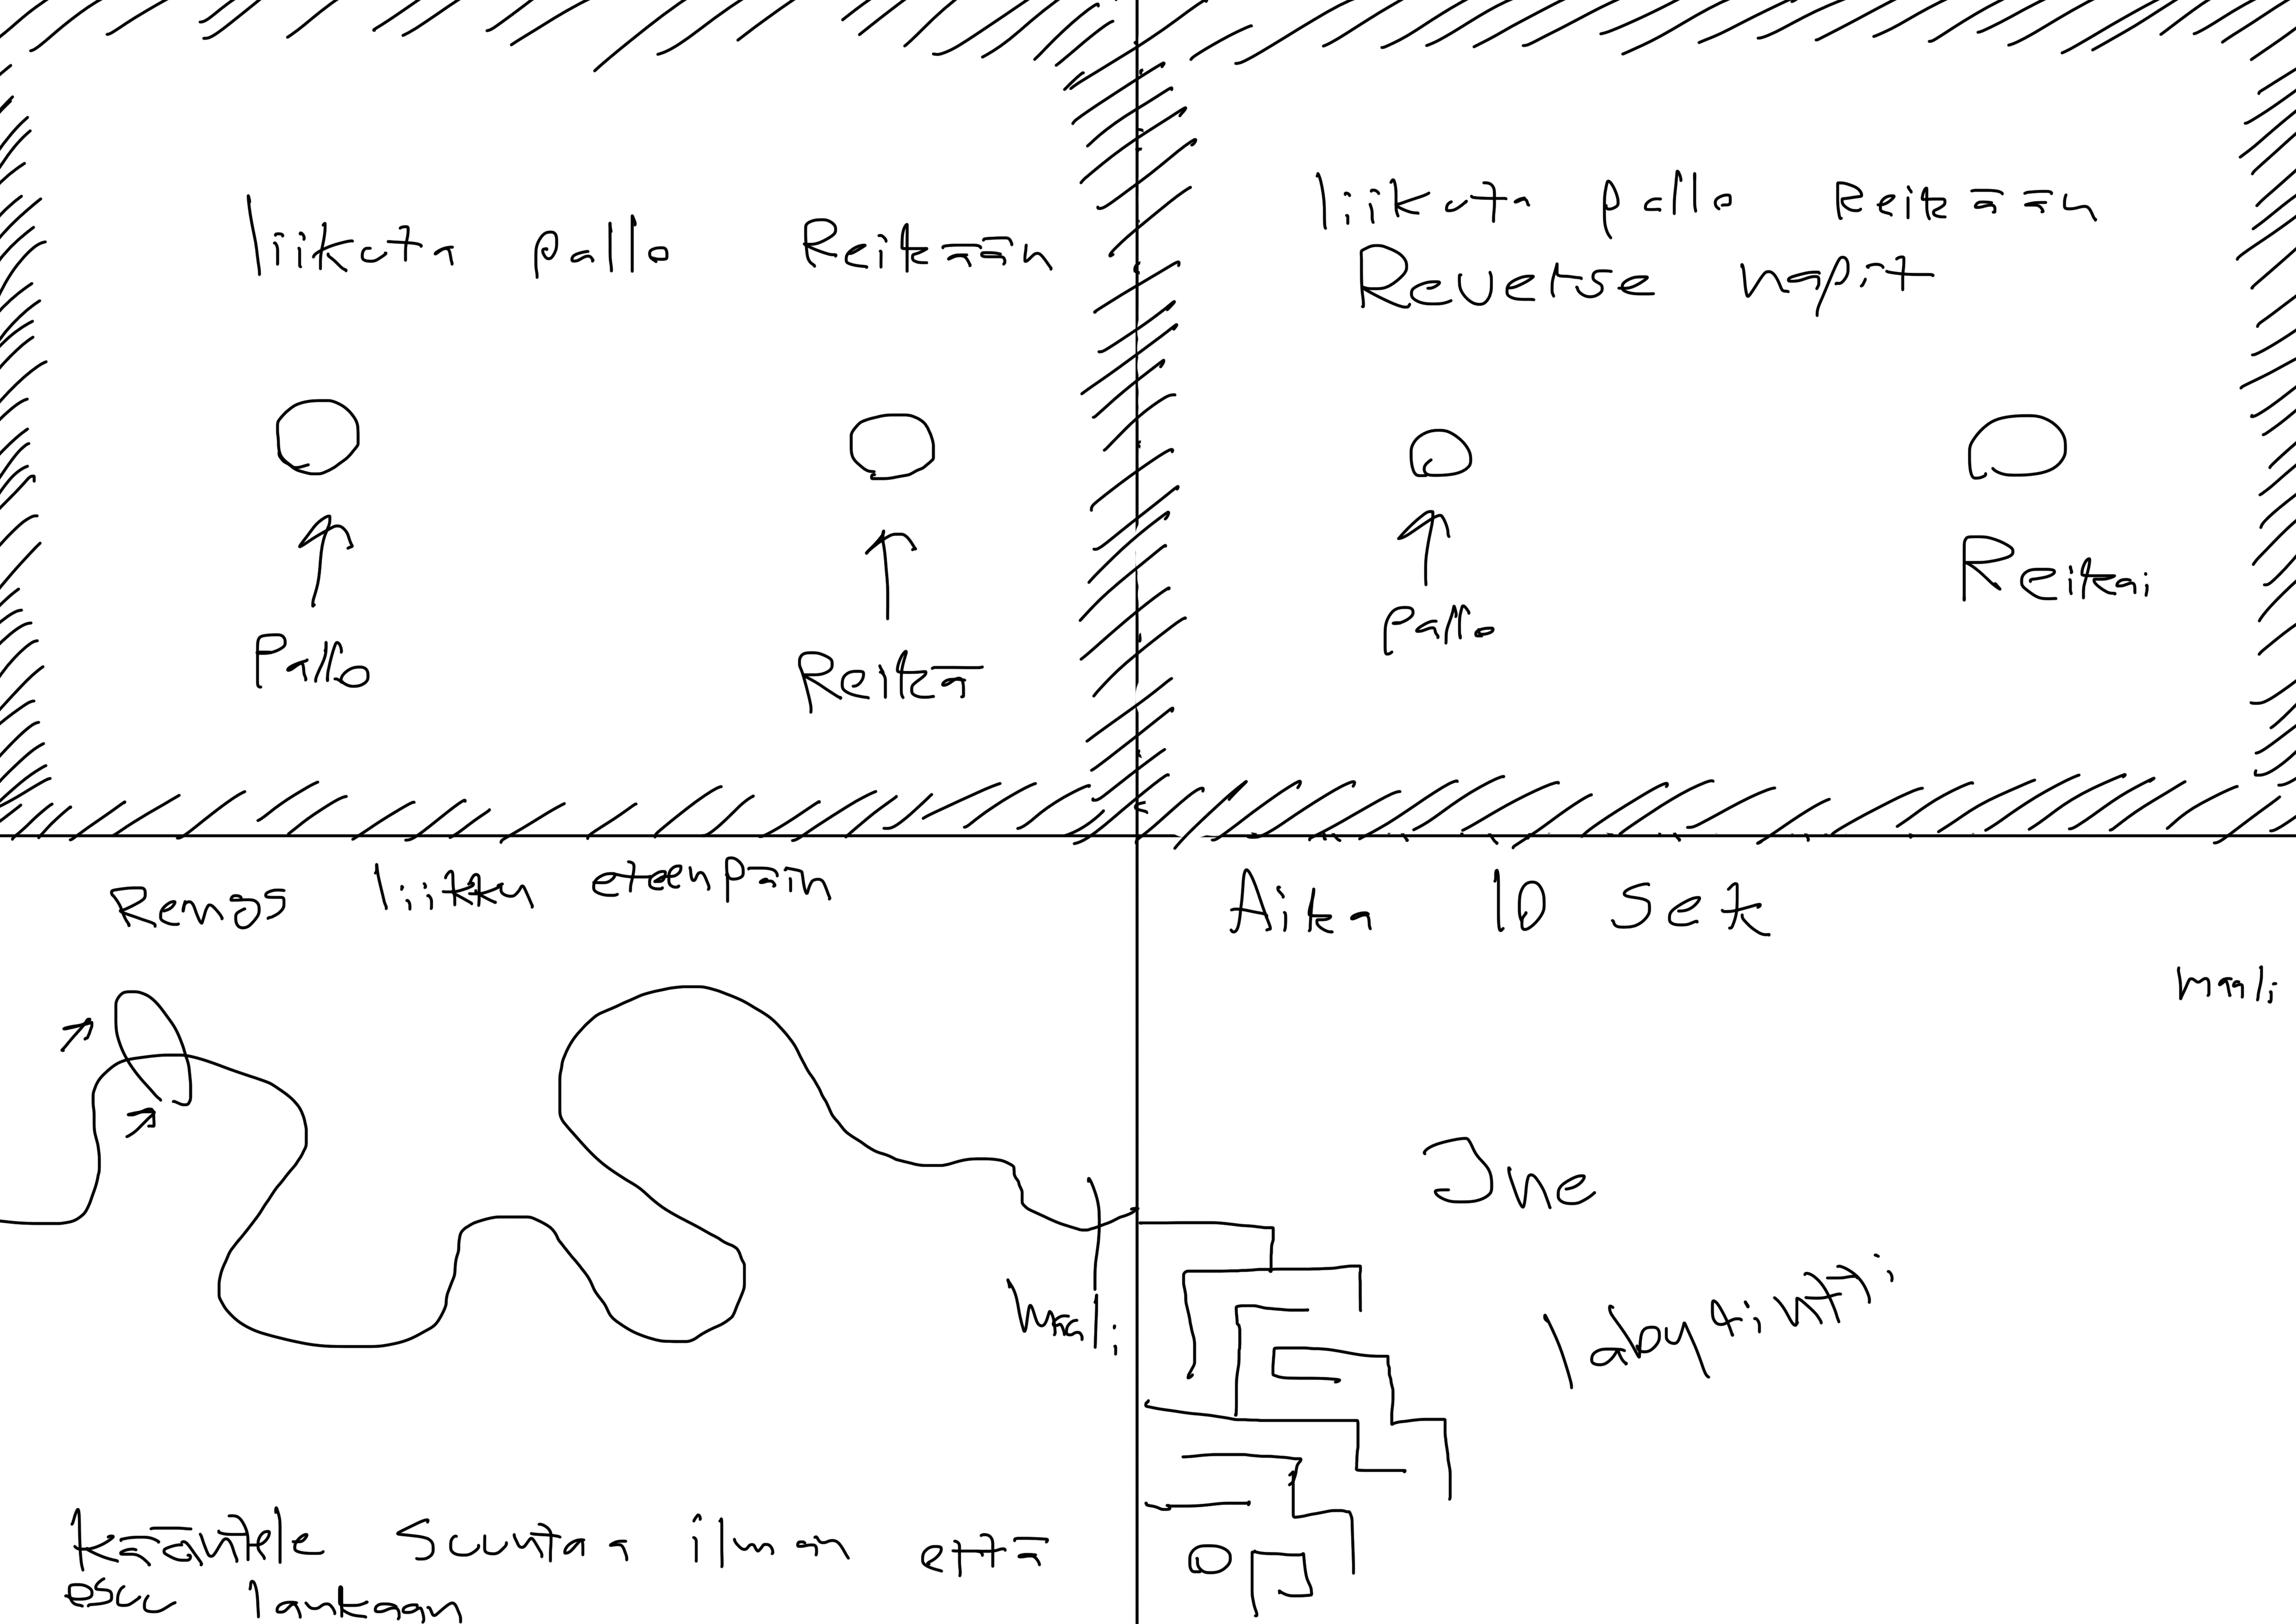 liikuta pallo Reikään
Pallo
Reikä
liikuta pallo Reikään
Reverse näpit
Pallo
Reikä
Rengas liikku eteenpäin
maali
kääntele Sauvaa ilman että
osuu lankaan
Aika 10 sek
maali
labyrintti